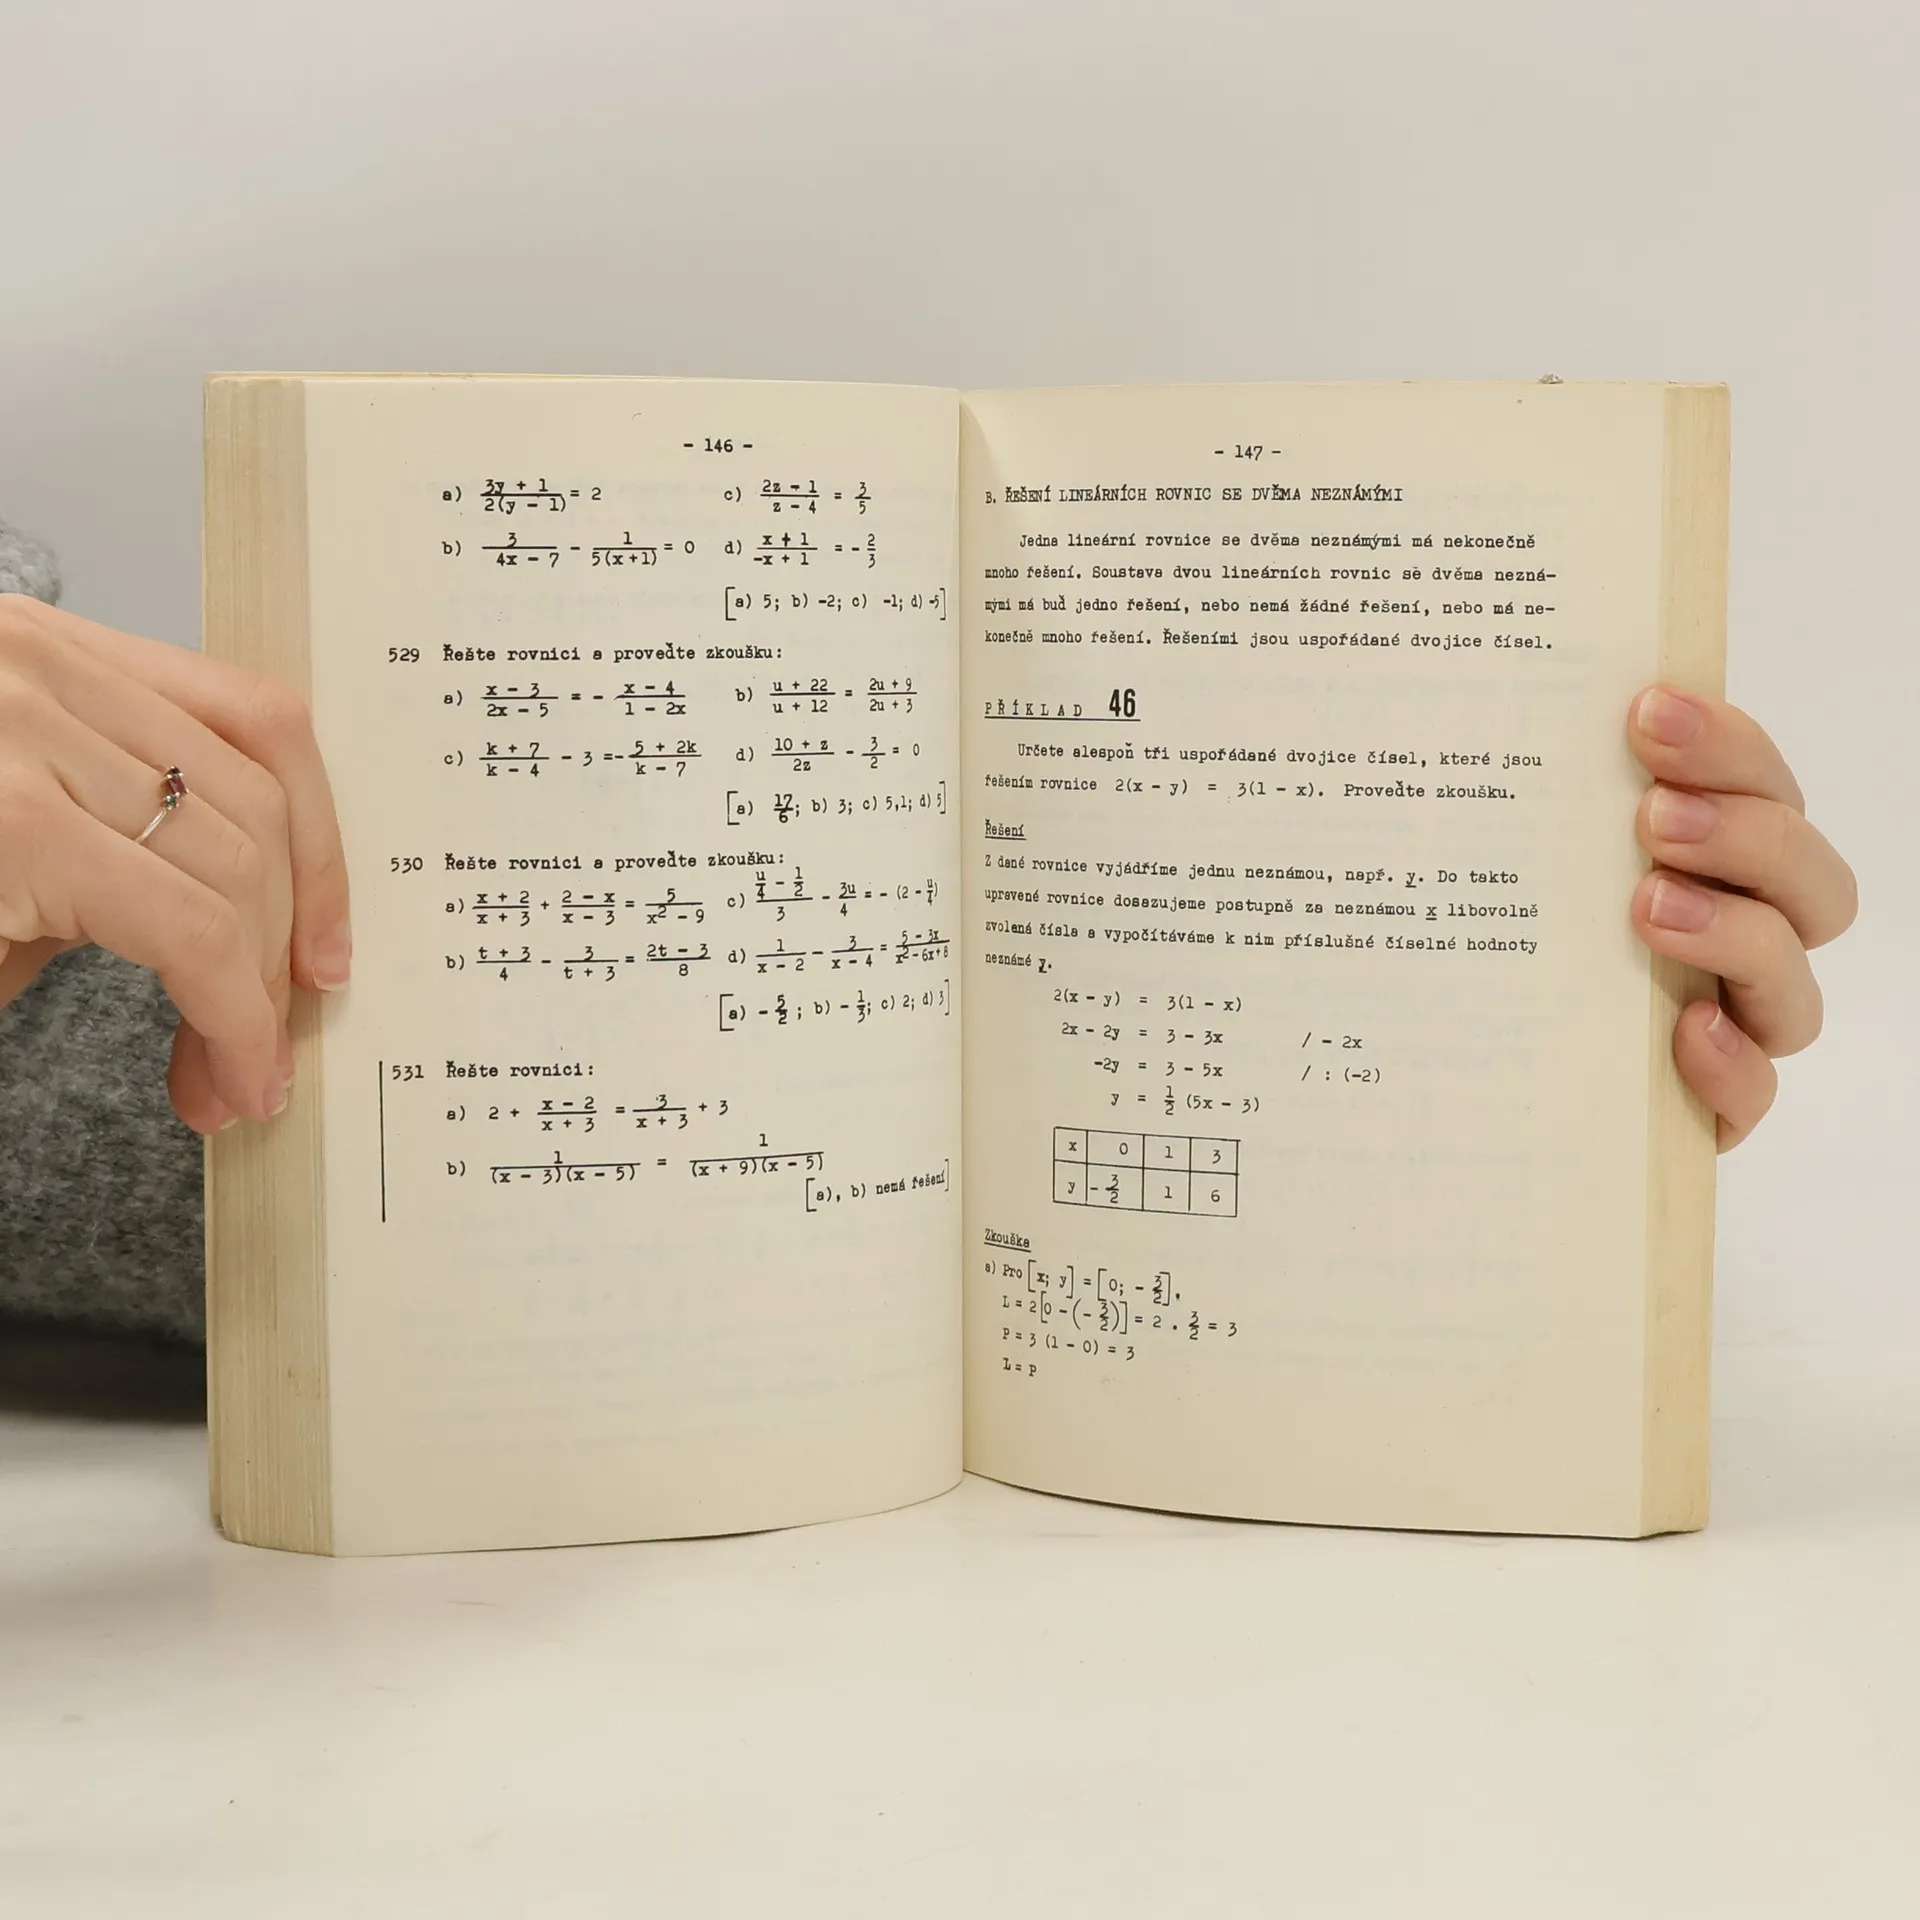 - 146 -
a) (3y + 1)/(2(y - 1)) = 2   c) (2z - 1)/(z - 4) = 3/5
b) 3/(4x - 7) - 1/(5(x+1)) = 0   d) (x + 1)/(-x + 1) = - 2/3
[a) 5; b) -2; c) -1; d) -5]
529 Řešte rovnici a proveďte zkoušku:
a) (x - 3)/(2x - 5) = - (x - 4)/(1 - 2x)   b) (u + 22)/(u + 12) = (2u + 9)/(2u + 3)
c) (k + 7)/(k - 4) - 3 = - (5 + 2k)/(k - 7)   d) (10 + z)/(2z) - 3/2 = 0
[a) 17/6; b) 3; c) 5,1; d) 5]
530 Řešte rovnici a proveďte zkoušku:
a) (x + 2)/(x + 3) + (2 - x)/(x - 3) = 5/(x² - 9)   c) (u/4 - 1/2)/3 - 3u/4 = - (2 - u/4)
b) (t + 3)/4 - 3/(t + 3) = (2t - 3)/8   d) 1/(x - 2) - 3/(x - 4) = (5 - 3x)/(x² - 6x + 8)
[a) - 5/2; b) - 1/3; c) 2; d) 3]
531 Řešte rovnici:
a) 2 + (x - 2)/(x + 3) = 3/(x + 3) + 3
b) 1/((x - 3)(x - 5)) = 1/((x + 9)(x - 5))
[a), b) nemá řešení]
- 147 -
B. ŘEŠENÍ LINEÁRNÍCH ROVNIC SE DVĚMA NEZNÁMÝMI
Jedna lineární rovnice se dvěma neznámými má nekonečně
mnoho řešení. Soustava dvou lineárních rovnic se dvěma nezná-
mými má buď jedno řešení, nebo nemá žádné řešení, nebo má ne-
konečně mnoho řešení. Řešeními jsou uspořádané dvojice čísel.
PŘÍKLAD 46
Určete alespoň tři uspořádané dvojice čísel, které jsou
řešením rovnice 2(x - y) = 3(1 - x). Proveďte zkoušku.
Řešení
Z dané rovnice vyjádříme jednu neznámou, např. y. Do takto
upravené rovnice dosazujeme postupně za neznámou x libovolně
zvolená čísla a vypočítáváme k nim příslušné číselné hodnoty
neznámé y.
2(x - y) = 3(1 - x)
2x - 2y = 3 - 3x / - 2x
-2y = 3 - 5x / : (-2)
y = 1/2 (5x - 3)
x 0 1 3
y - 3/2 1 6
Zkouška
a) Pro [x; y] = [0; - 3/2].
L = 2[0 - (- 3/2)] = 2 . 3/2 = 3
P = 3 (1 - 0) = 3
L = P